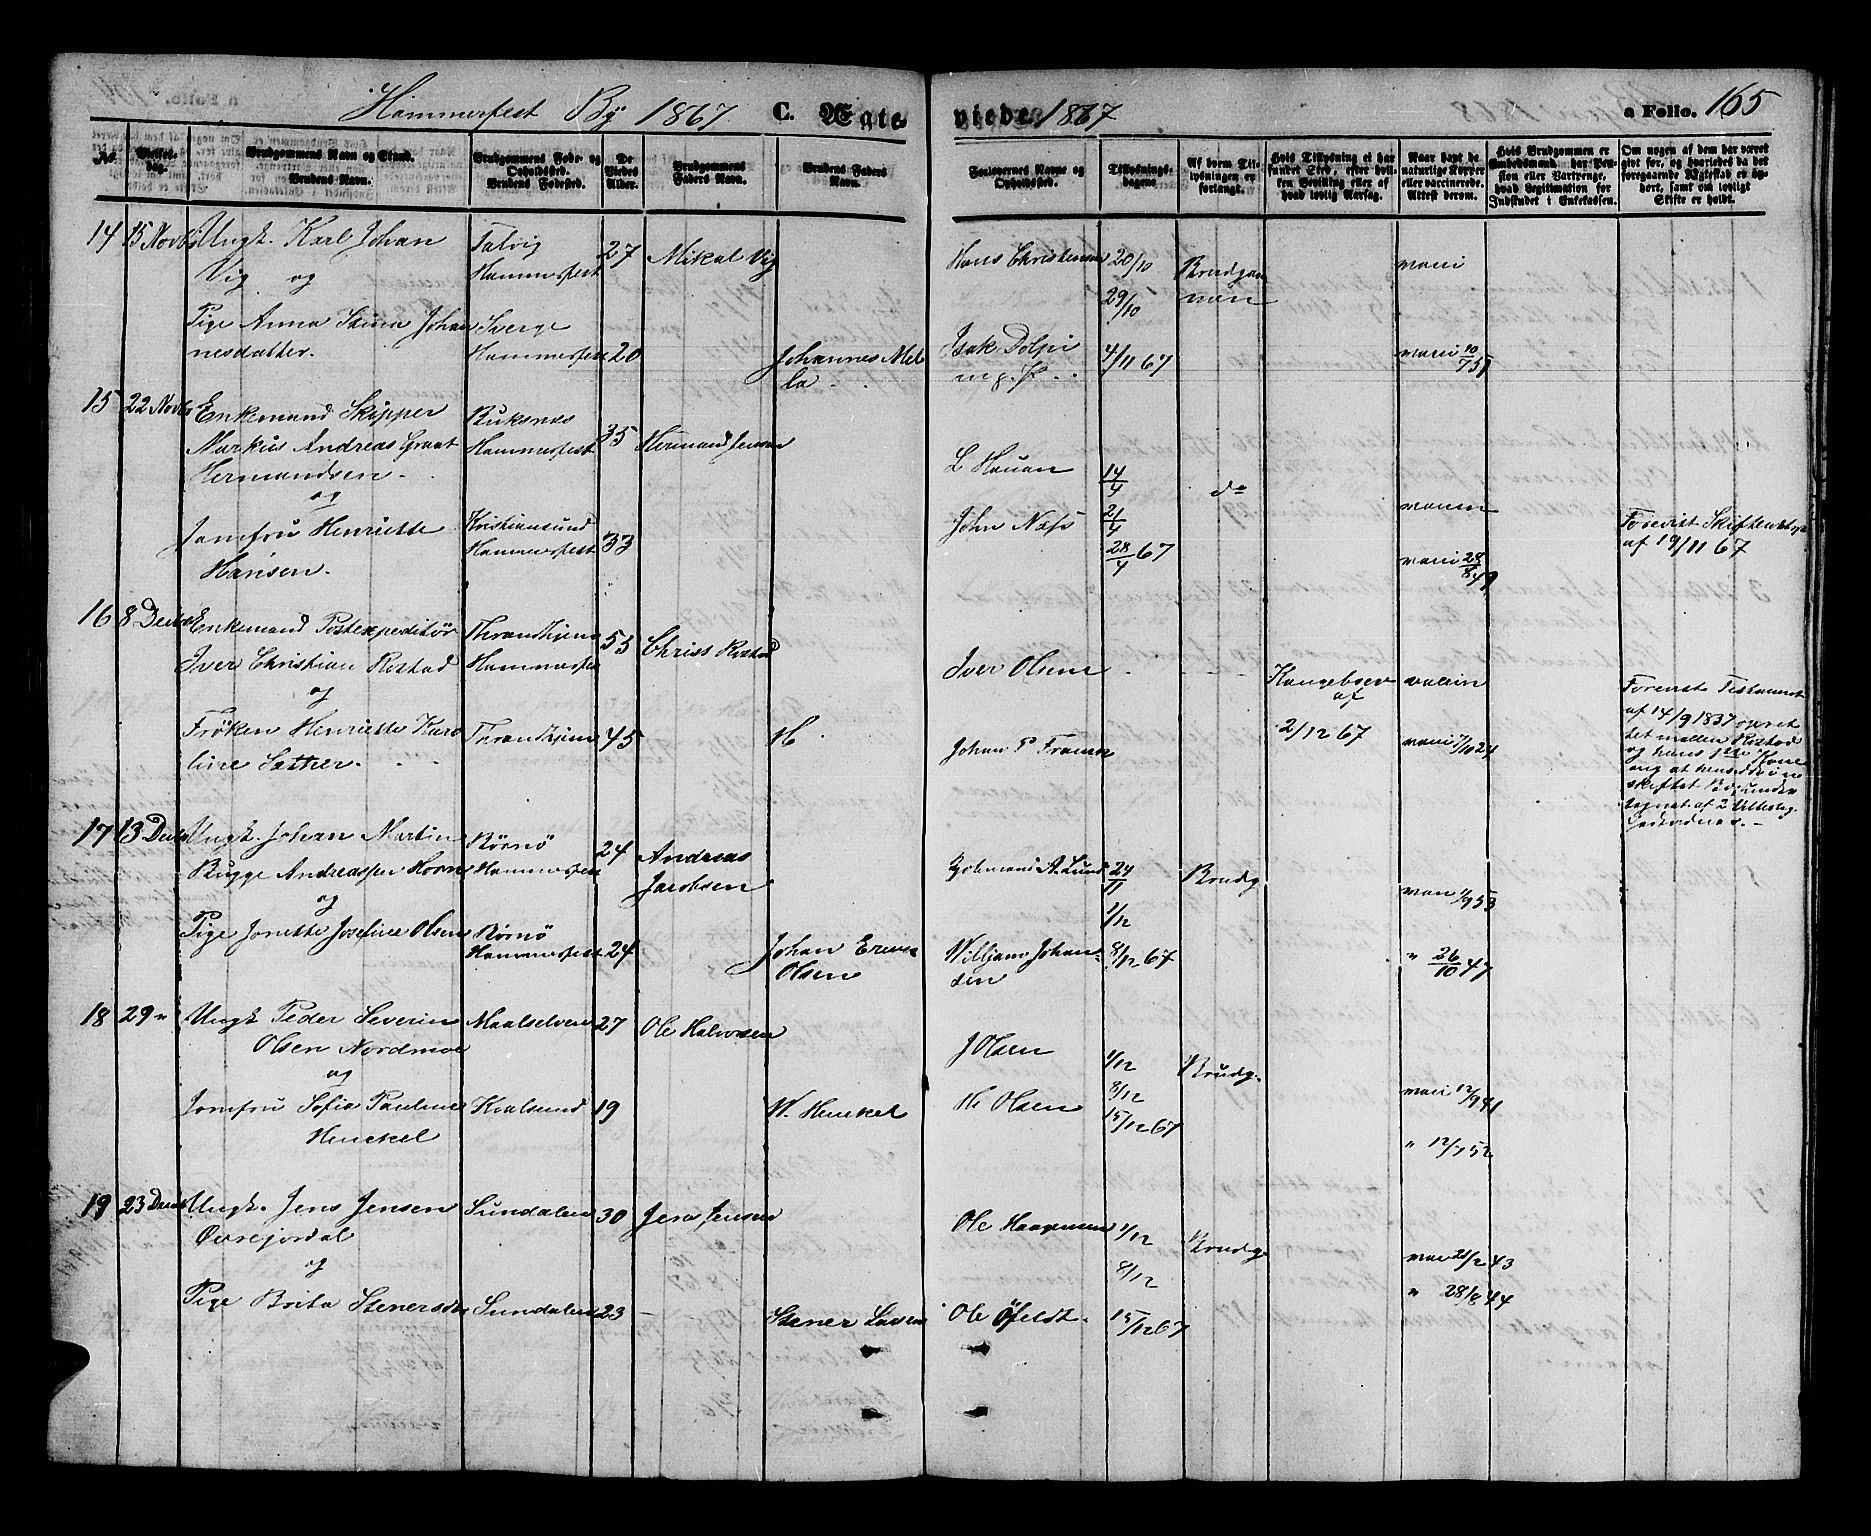 Hammerfest By 1867. C. Ægte-
viede. 1867
a Folio. 165
No.
Vielses-Dag.
Brudgommens Navn og Stand.
Brudens Navn.
Brudgommens Føde- og Opholdssted.
Brudens Fødested.
De Viedes Alder.
Brudgommens Faders Navn.
Brudens Faders Navn.
Forlovernes Navne og Opholdssted.
Tillysnings-dagene
Af hvem Tillysningen er forlangt.
Hvis Tillysning ei har fundet Sted, efter hvilken Bevilling eller af hvad lovlig Aarsag.
Naar havt de naturlige Kopper eller vaccinerede. Attest derom.
Hvis Brudgommen er Embedsmand, har Pension eller Vartpenge, hvad Legitimation for Indskudet i Enkekassen.
Om nogen af dem har været gift før, og hvorledes da det foregaaende Ægteskab er ophørt, samt om lovligt Skifte er holdt.
14 15 Novbr Ungk. Karl Johan
Vig og
Talvig
Hammerfest
27 Mikal Vig
Hans Christensen 20/10
29/10
Brudgommen
vacci
Pige Anna Stina Johan
nesdatter.
Sverge
Hammerfest 20
Johannes Mella
Isak Dolpi
4/11 67
vacci 10/7 51
15 22 Novbr Enkemand Skipper
Markus Andreas Graat
Hermandsen
og
Buksnæs
Hammerfest
35 Hermand Jensen
L Hauan
14/4
do
vaccin
Jomfru Henriette
Hansen.
Kristiansund
Hammerfest 33
John Næss
21/4
28/4 67
vacci 28/8 49
Forevist Skifteattest
af 19/11 67
16 8 Decbr Enkemand Postexpeditør
Iver Christian Rostad
og
Throndhjem
Hammerfest
55 Christ Rostad
Iver Olsen
Kongebrev
af
2/12 67
vaccin
Frøken Henriette Karo
line Sæther.
Throndhjem 45
H
Johan P Fransen
vacci 7/10 24
Forevist Testament
af 14/9 1837 opret
tet mellem Rostad
og hans 1ste Kone
ang at hensidde i u
skiftet Bo, under
tegnet af 2
17 13 Decbr Ungk. Johan Martin
Bugge Andreassen Horn
og
Børnø
Hammerfest
24 Andreas
Jacobsen
A. Lund
24/11
1/12
Brudg
vacci 1/9 53
Pige Jonette Josefine Olsen
Børnø
Hammerfest 24
Johan
Olsen
Williams Johan-
sen
8/12 67
" 26/10 47
18 29 " Ungk Peder Severin
Olsen Nordmoe
og
Maalselven 27 Ole Halvorsen
J Olsen
1/12
8/12
Brudg.
vacci 12/9 41
Jomfru Sofia Pauline
Henckel
Kvalsund 19
W. Henckel
H. Olsen
15/12 67
" 12/7 52
19 23 Decbr Ungk. Jens Jensen
Øvrejordal
og
Sundalen 30 Jens Jensen
Ole Haagensen 1/12
8/12
Brudg
vacc 21/2 43
Pige Brita Stenersdr
Sundalen 23 -
Stener Larsen
Ole Øfeldt.
15/12 67
" 28/8 44